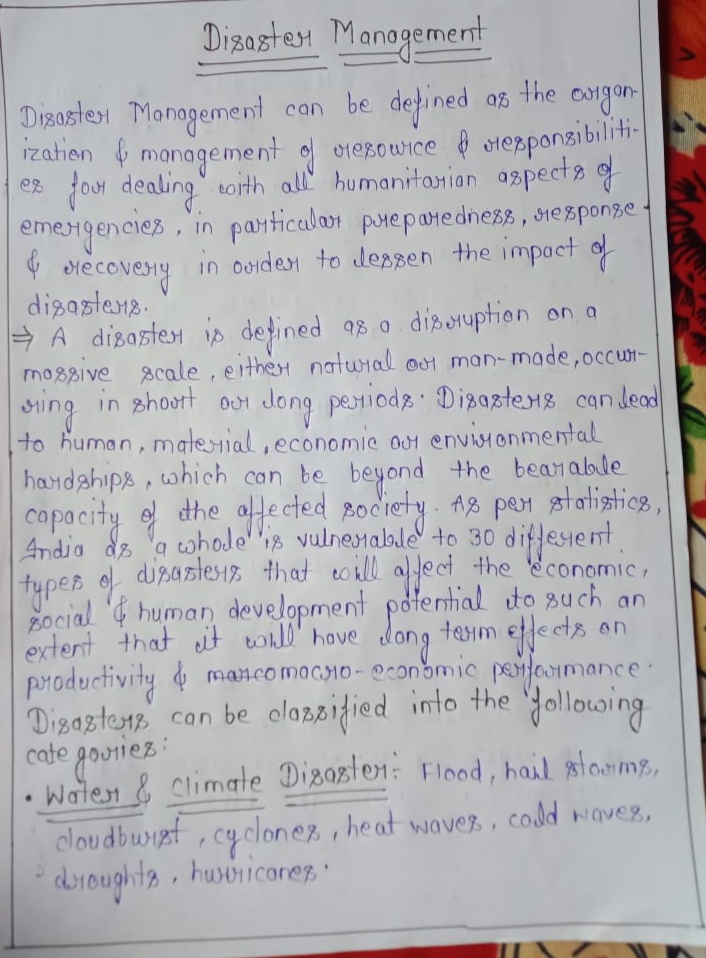 Disaster Management
Disaster Management can be defined as the organ-
ization & management of resource & responsibiliti-
es for dealing with all humanitarian aspects of
emergencies, in particular preparedness, response
& recovery in order to lessen the impact of
disasters.
⇒ A disaster is defined as a disruption on a
massive scale, either natural or man-made, occur-
ring in short or long periods. Disasters can lead
to human, material, economic or environmental
hardships, which can be beyond the bearable
capacity of the affected society. As per statistics,
India as a whole is vulnerable to 30 different
types of disasters that will affect the economic,
social & human development potential to such an
extent that it will have long term effects on
productivity & marcomacro-economic performance.
Disasters can be classified into the following
categories:
• Water & Climate Disaster: Flood, hail storms,
cloudburst, cyclones, heat waves, cold waves,
droughts, hurricanes.